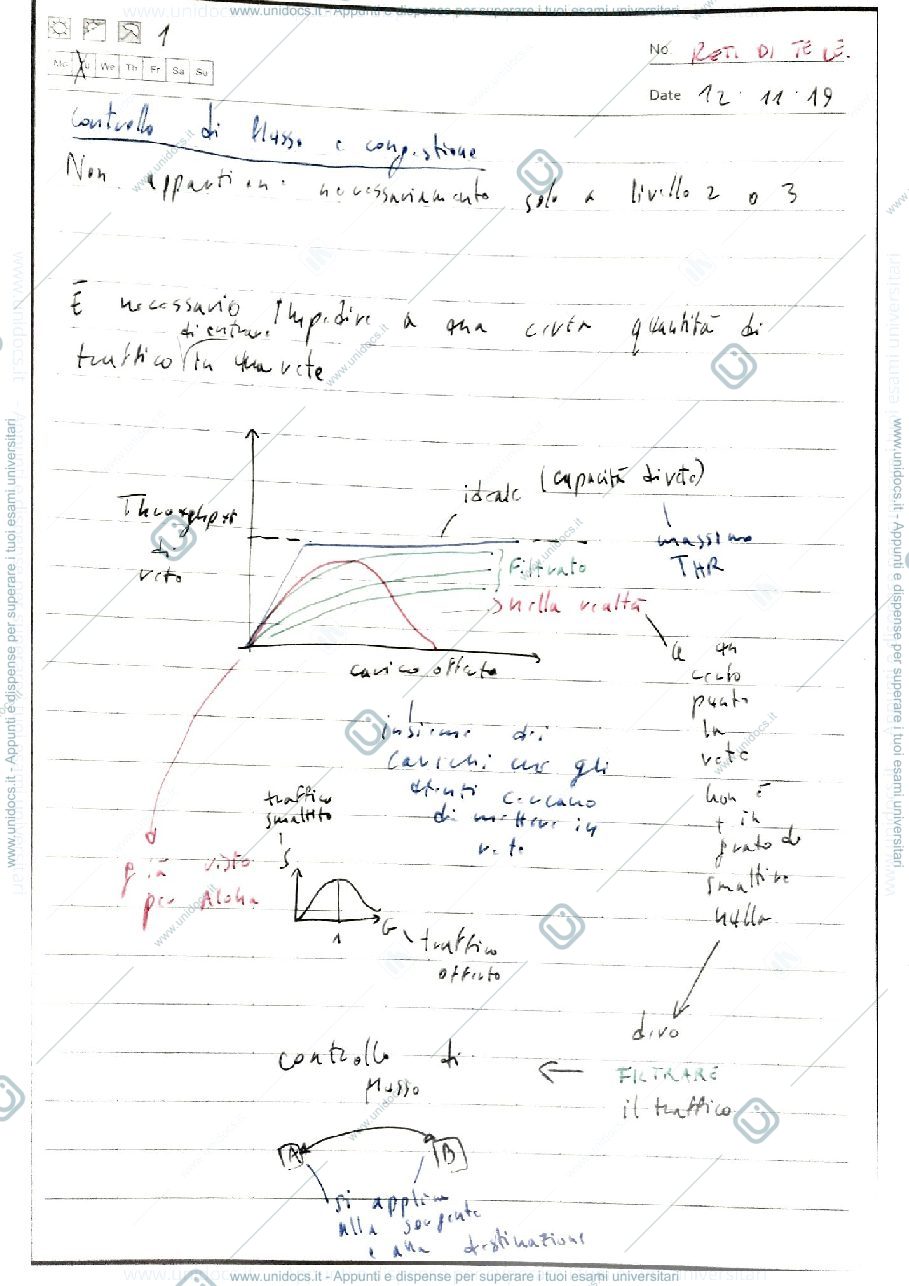 www.unidocs.it - Appunti e dispense per superare i tuoi esami universitari
1
No RETI DI TELE.
Mo Tu We Th Fr Sa Su
Date 12 · 11 · 19
controllo di flusso e congestione
Non appartiene necessariamente solo a livello 2 o 3
È necessario impedire a una certa quantità di
di entrare
traffico in una rete
ideale (capacità di rete)
Throughput
di
rete
massimo
THR
filtrato
nella realtà
carico offerto
a un
certo
punto
la
rete
non è
+ in
grado di
smaltire
nulla
insieme dei
carichi che gli
utenti cercano
di mettere in
rete
traffico
smaltito
S
già visto
per Aloha
1
G
traffico
offerto
devo
FILTRARE
il traffico
controllo di
flusso
A
B
si applica
alla sorgente
e alla destinazione
www.unidocs.it - Appunti e dispense per superare i tuoi esami universitari